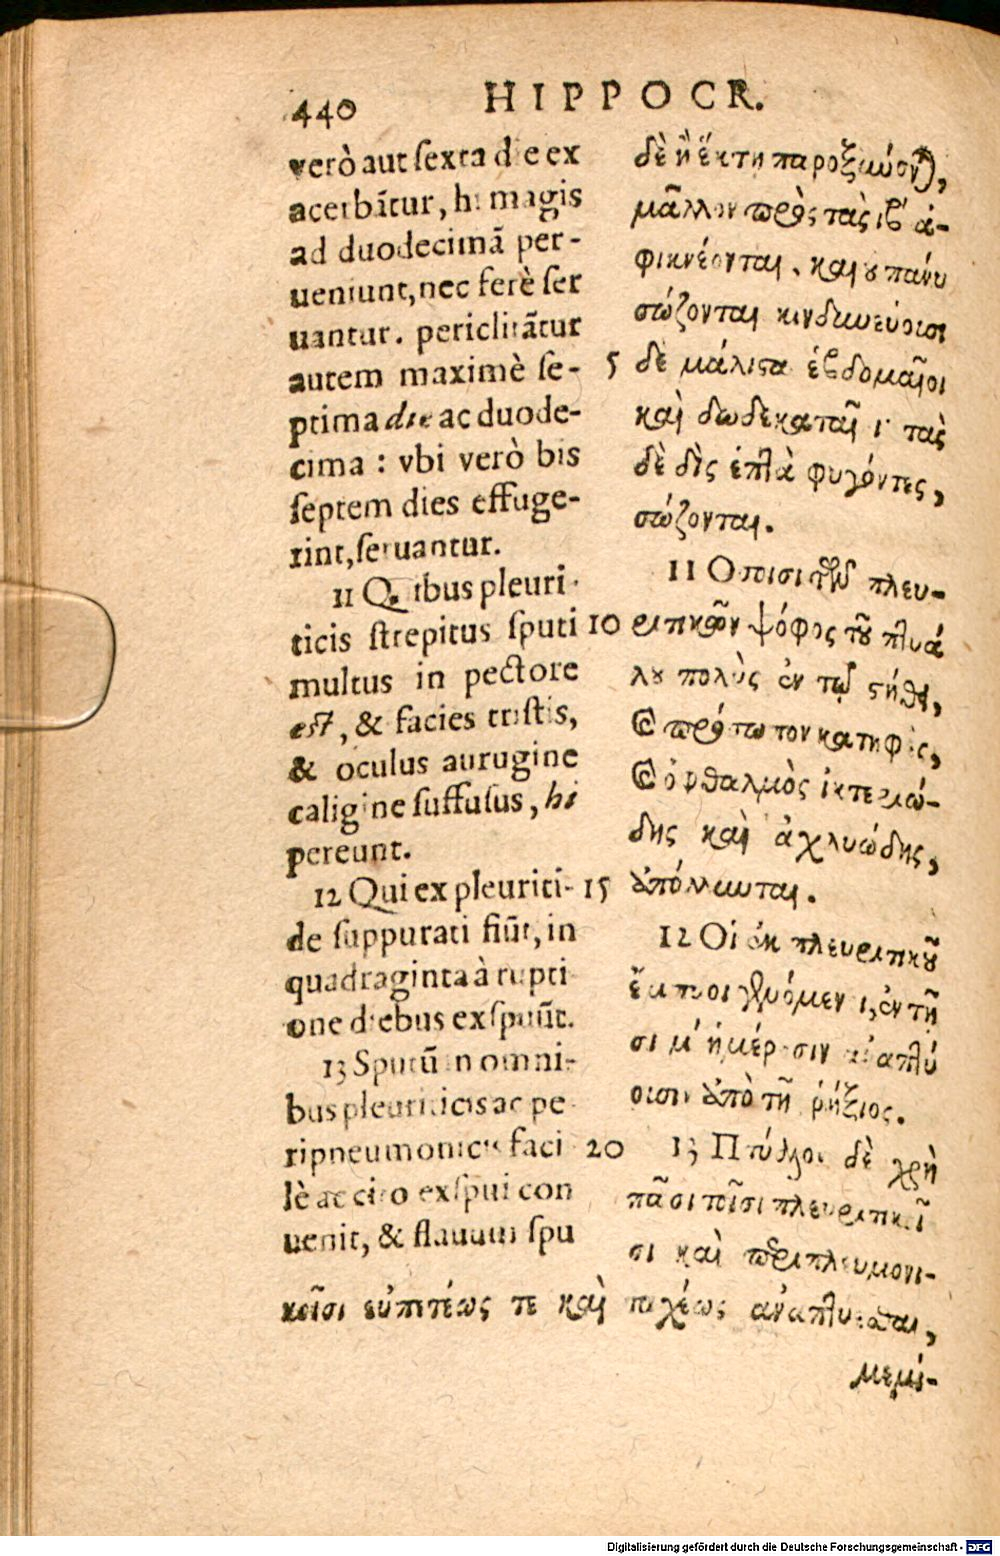 440 HIPPOCR.
verò aut ſexta die ex
acerbãtur, hi magis
ad duodecimã per-
ueniunt, nec ferè ſer
uantur. periclitãtur
autem maximè ſe-
ptima die ac duode-
cima : vbi verò bis
ſeptem dies effuge-
rint, ſeruantur.
11 Quibus pleuri-
ticis ſtrepitus ſputi
multus in pectore
eſt, & facies triſtis,
& oculus aurugine
caligine ſuffuſus, hi
pereunt.
12 Qui ex pleuriti-
de ſuppurati fiũt, in
quadraginta à rupti
one diebus exſpuũt.
13 Sputũ in omni-
bus pleuriticis ac pe
ripneumonicis faci
lè ac cito exſpui con
uenit, & flauum ſpu
δὲ ἢ ἕκτῃ παροξυμώσνται,
μᾶλλον πρὸς τὰς ιβ ἀ-
φικνέονται, καὶ ȣ πάνυ
σώζονται κινδυνεύουσι
5 δὲ μάλιϛα ἑβδομαῖοι
καὶ δωδεκαταῖοι· τὰς
δὲ δὶς ἑπτὰ φυγόντες,
σώζονται.
11 Οποισι τῶν πλευ-
10 ριτικῶν ψόφος τοῦ πτυά
λȣ πολὺς ἐν τῷ ϛήθει,
καὶ πρόσωπον κατηφὲς,
καὶ ὀφθαλμὸς ἰκτεριώ-
δης καὶ ἀχλυώδης,
15 ἀπόλλυνται.
12 Οἱ ἐκ πλευριτικοῦ
ἔμπυοι γενόμενοι, ἐν τῇ
σι μʹ ἡμέρῃσιν ἀναπτύ
ουσιν ἀπὸ τῆς ῥήξιος.
20 13 Πτύελον δὲ χρὴ
πᾶσι τοῖσι πλευριτικοῖ
σι καὶ περιπλευμονι-
κοῖσι εὐπετέως τε καὶ ταχέως ἀναπτύεσθαι,
μεμι-
Digitalisierung gefördert durch die Deutsche Forschungsgemeinschaft - DFG